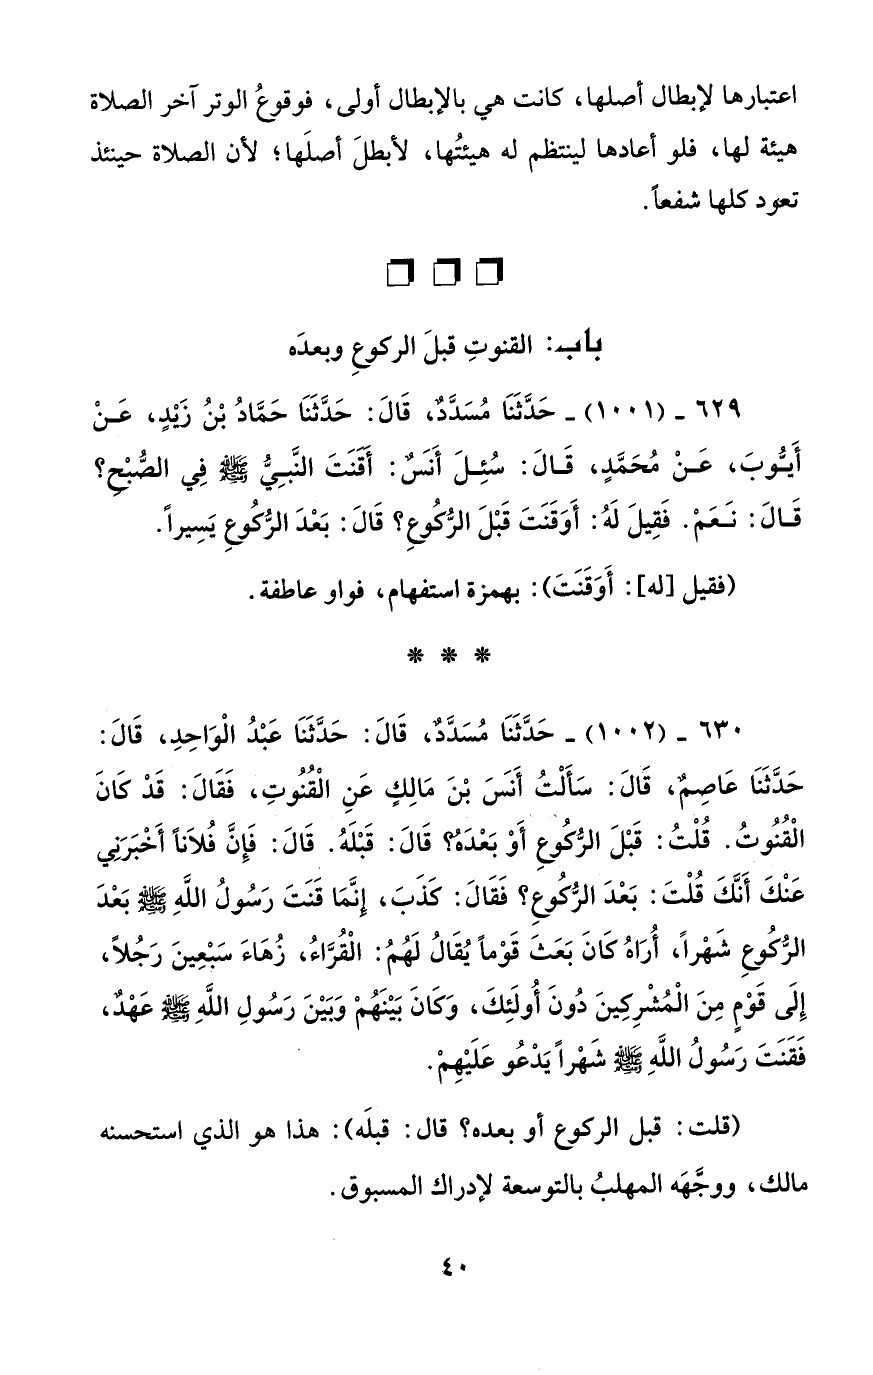 اعتبارها لإبطال أصلها، كانت هي بالإبطال أولى، فوقوعُ الوتر آخر الصلاة
هيئة لها، فلو أعادها لينتظم له هيئتُها، لأبطلَ أصلَها؛ لأن الصلاة حينئذ
تعود كلها شفعاً.
باب: القنوتِ قبلَ الركوعِ وبعدَه
٦٢٩ ـ (١٠٠١) ـ حَدَّثَنَا مُسَدَّدٌ، قَالَ: حَدَّثَنَا حَمَّادُ بْنُ زَيْدٍ، عَـنْ
أَيُّوبَ، عَـنْ مُحَمَّدٍ، قَـالَ: سُئِـلَ أَنَسٌ: أَقَنَتَ النَّبِـيُّ ﷺ فِي الصُّبْحِ؟
قَـالَ: نَـعَمْ. فَقِيلَ لَهُ: أَوَقَنَتَ قَبْلَ الرُّكُوعِ؟ قَالَ: بَعْدَ الرُّكُوعِ يَسِيراً.
(فقيل [له]: أَوَقَنَتَ): بهمزة استفهام، فواو عاطفة.
* * *
٦٣٠ ـ (١٠٠٢) ـ حَدَّثَنَا مُسَدَّدٌ، قَالَ: حَدَّثَنَا عَبْدُ الْوَاحِدِ، قَالَ:
حَدَّثَنَا عَاصِمٌ، قَالَ: سَأَلْتُ أَنَسَ بْنَ مَالِكٍ عَنِ الْقُنُوتِ، فَقَالَ: قَدْ كَانَ
الْقُنُوتُ. قُلْتُ: قَبْلَ الرُّكُوعِ أَوْ بَعْدَهُ؟ قَالَ: قَبْلَهُ. قَالَ: فَإِنَّ فُلَاناً أَخْبَرَنِي
عَنْكَ أَنَّكَ قُلْتَ: بَعْدَ الرُّكُوعِ؟ فَقَالَ: كَذَبَ، إِنَّمَا قَنَتَ رَسُولُ اللَّهِ ﷺ بَعْدَ
الرُّكُوعِ شَهْراً، أُرَاهُ كَانَ بَعَثَ قَوْماً يُقَالُ لَهُمُ: الْقُرَّاءُ، زُهَاءَ سَبْعِينَ رَجُلاً،
إِلَى قَوْمٍ مِنَ الْمُشْرِكِينَ دُونَ أُولَئِكَ، وَكَانَ بَيْنَهُمْ وَبَيْنَ رَسُولِ اللَّهِ ﷺ عَهْدٌ،
فَقَنَتَ رَسُولُ اللَّهِ ﷺ شَهْراً يَدْعُو عَلَيْهِمْ.
(قلت: قبل الركوع أو بعده؟ قال: قبلَه): هذا هو الذي استحسنه
مالك، ووجَّهَه المهلبُ بالتوسعة لإدراك المسبوق.
٤٠